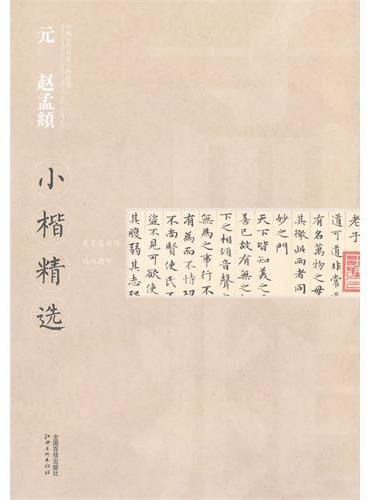 元 赵孟頫
小楷精选
老子
道可道非常
有名萬物之母
其徼此兩者同
妙之門
天下皆知美之
善已故有無之
下之相傾音聲
無為之事行不
有為而不恃功
不尚賢使民不
盜不見可欲使
其腹弱其志
全国百佳出版社
江西美术出版社